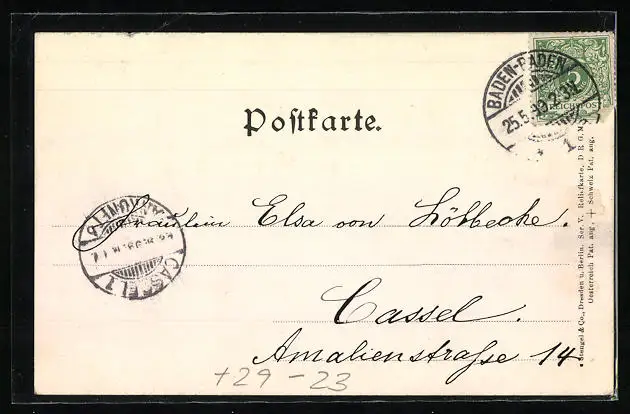 BADEN-BADEN
25.5.99.2-3N.
* 1
REICHSPOST
Postkarte.
Fräulein Elsa von Löbbecke.
CASSEL 1
Cassel.
Amalienstraße 14
+29-23
Stengel & Co., Dresden u. Berlin. Ser. V. Reliefkarte, D R G M
Oesterreich Pat. ang. + Schweiz Pat. ang.